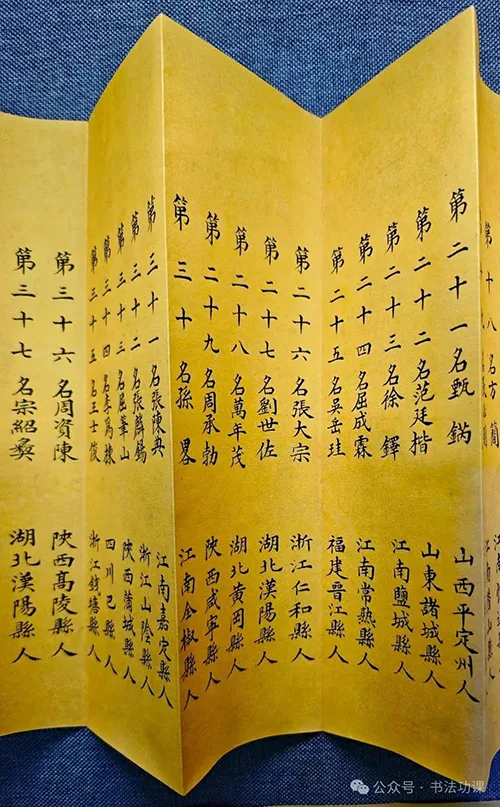 第二十一名甄鍋 山西平定州人
第二十二名范廷楷 山東諸城縣人
第二十三名徐鐸 江南鹽城縣人
第二十四名屈成霖 江南常熟縣人
第二十五名吳岳珪 福建晉江縣人
第二十六名張大宗 浙江仁和縣人
第二十七名劉世佐 湖北漢陽縣人
第二十八名萬年茂 湖北黃岡縣人
第二十九名周承勃 陝西咸寧縣人
第三十名孫畧 江南全椒縣人
第三十一名張陳典 江南嘉定縣人
第三十二名張麟錫 浙江山陰縣人
第三十三名屈筆山 陝西蒲城縣人
第三十四名李為棟 四川巴縣人
第三十五名王士俊 浙江錢塘縣人
第三十六名周資陳 陝西髙陵縣人
第三十七名宗紹 湖北漢陽縣人
公众号·书法功课